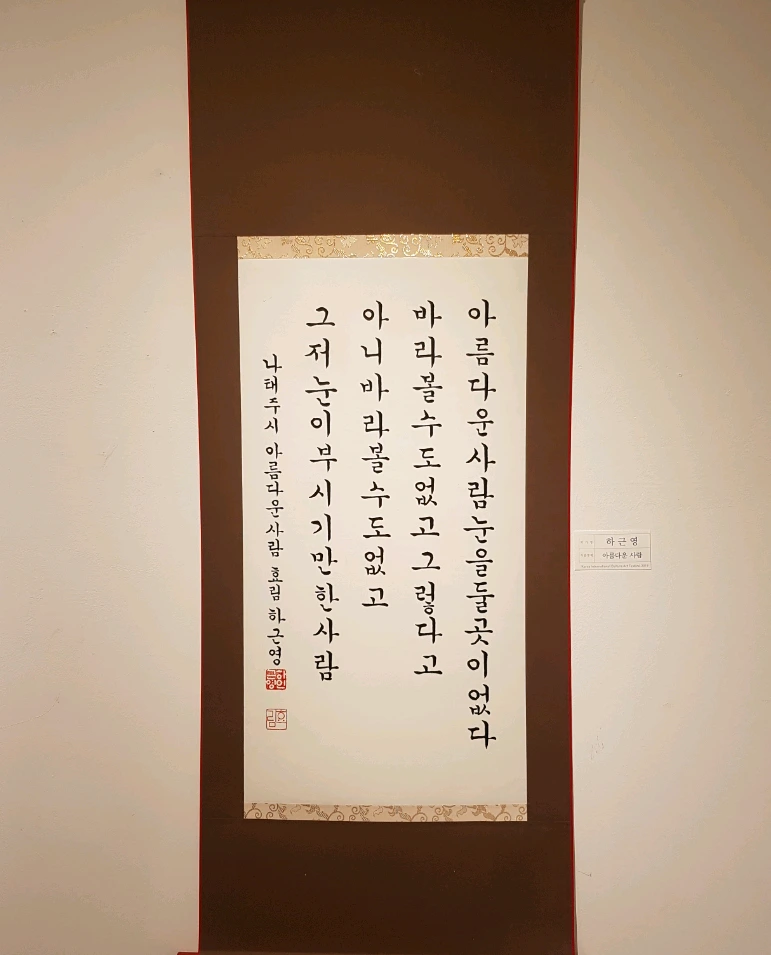 아름다운사람눈을둘곳이없다
바라볼수도없고그렇다고
아니바라볼수도없고
그저눈이부시기만한사람
나태주시 아름다운사람 효림 하근영
하근영
아름다운 사람